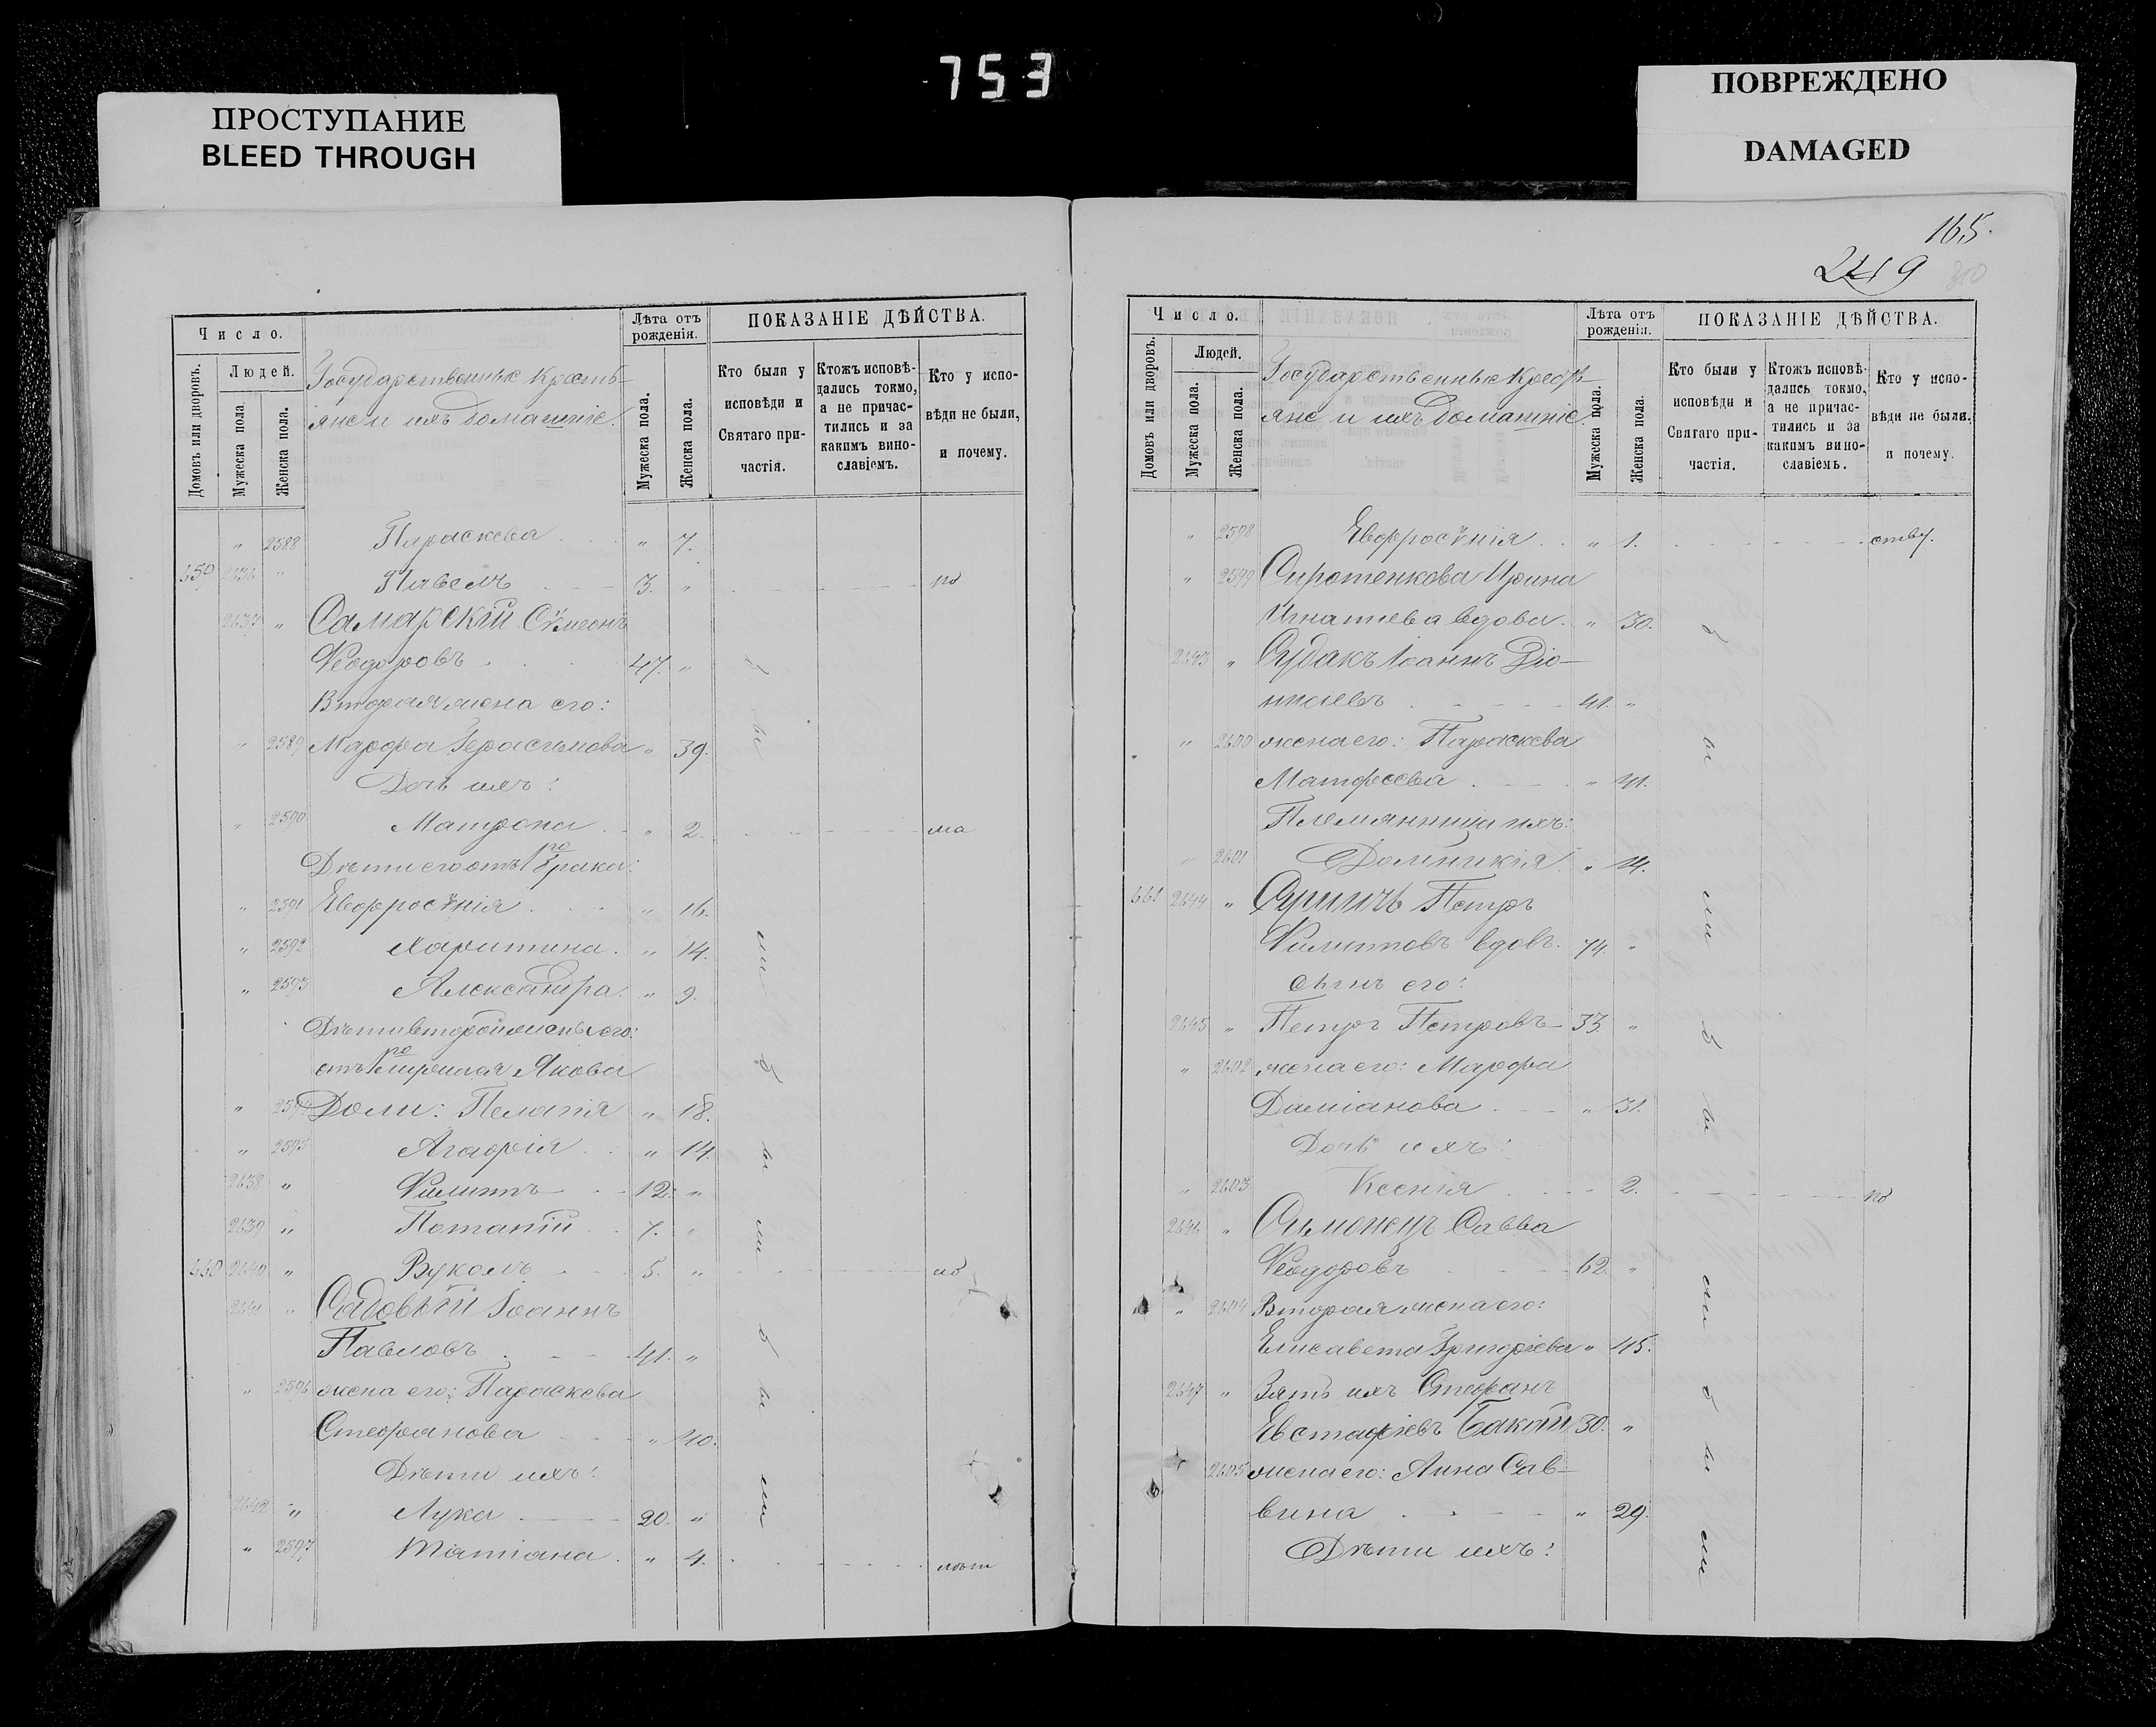 753
ПРОСТУПАНИЕ
BLEED THROUGH
ПОВРЕЖДЕНО
DAMAGED
Число.
Домовъ или дворовъ.
Людей.
Мужеска пола.
Женска пола.
Государственные кресть-
яне и ихъ домашніе.
Лѣта отъ рожденія.
Мужеска пола.
Женска пола.
ПОКАЗАНІЕ ДѢЙСТВА.
Кто были у исповѣди и Святаго при-частія.
Ктожъ исповѣ-дались токмо, а не причас-тились и за какимъ вино-славіемъ.
Кто у испо-вѣди не были, и почему.
" 2588 Параскева " 7.
659 2636 " Павелъ 3. " по
2637 " Самарскій Сѵмеонъ
Ѳеодоровъ 47. "
Вторая жена его:
" 2589 Марѳа Герасимова " 39.
Дочь ихъ:
" 2590 Матрона " 2. ма
Дѣти его отъ 1го брака:
" 2591 Евфросѵнія " 16.
" 2592 Харитина " 14.
" 2593 Александра " 9.
Дѣти второй жены его:
отъ 1го мужа Якова
" 2594 Доли: Пелагія " 18.
" 2595 Агафія " 14.
2638 " Филиппъ 12. "
2639 " Потапій 7. "
660 2640 " Вуколъ 5. "
2641 " Садовый Іоаннъ
Павловъ 41. "
" 2596 жена его: Параскева
Стефанова " 40.
Дѣти ихъ:
2642 " Лука 20. "
" 2597 Татіана " 4. лѣт
бы ли бы ли бы ли
165.
249
310
Число.
Домовъ или дворовъ.
Людей.
Мужеска пола.
Женска пола.
Государственные кресть-
яне и ихъ домашніе.
Лѣта отъ рожденія.
Мужеска пола.
Женска пола.
ПОКАЗАНІЕ ДѢЙСТВА.
Кто были у исповѣди и Святаго при-частія.
Ктожъ исповѣ-дались токмо, а не причас-тились и за какимъ вино-славіемъ.
Кто у испо-вѣди не были, и почему.
" 2598 Евфросѵнія " 1. ству.
" 2599 Сиротенкова Ирина
Игнатіева вдова. " 30.
2643 " Судакъ Іоаннъ Діо-
нисіевъ 41. "
" 2600 жена его: Параскева
Матфеева " 41.
Племянница ихъ:
" 2601 Домникія " 14.
661 2644 " Петръ
Филипповъ вдовъ. 74. "
сынъ его:
2645 " Петръ Петровъ 33. "
" 2602 жена его: Марѳа
Даміанова " 31.
Дочь ихъ:
" 2603 Ксенія 2. по
2646 " Савва
Ѳеодоровъ 62. "
" 2604 Вторая жена его:
Елисавета Григоріева " 45.
2647 " Зять ихъ Стефанъ
Евстафіевъ Бакай 30. "
2605 жена его: Анна Сав-
вина " 29.
Дѣти ихъ:
бы ли бы ли бы ли